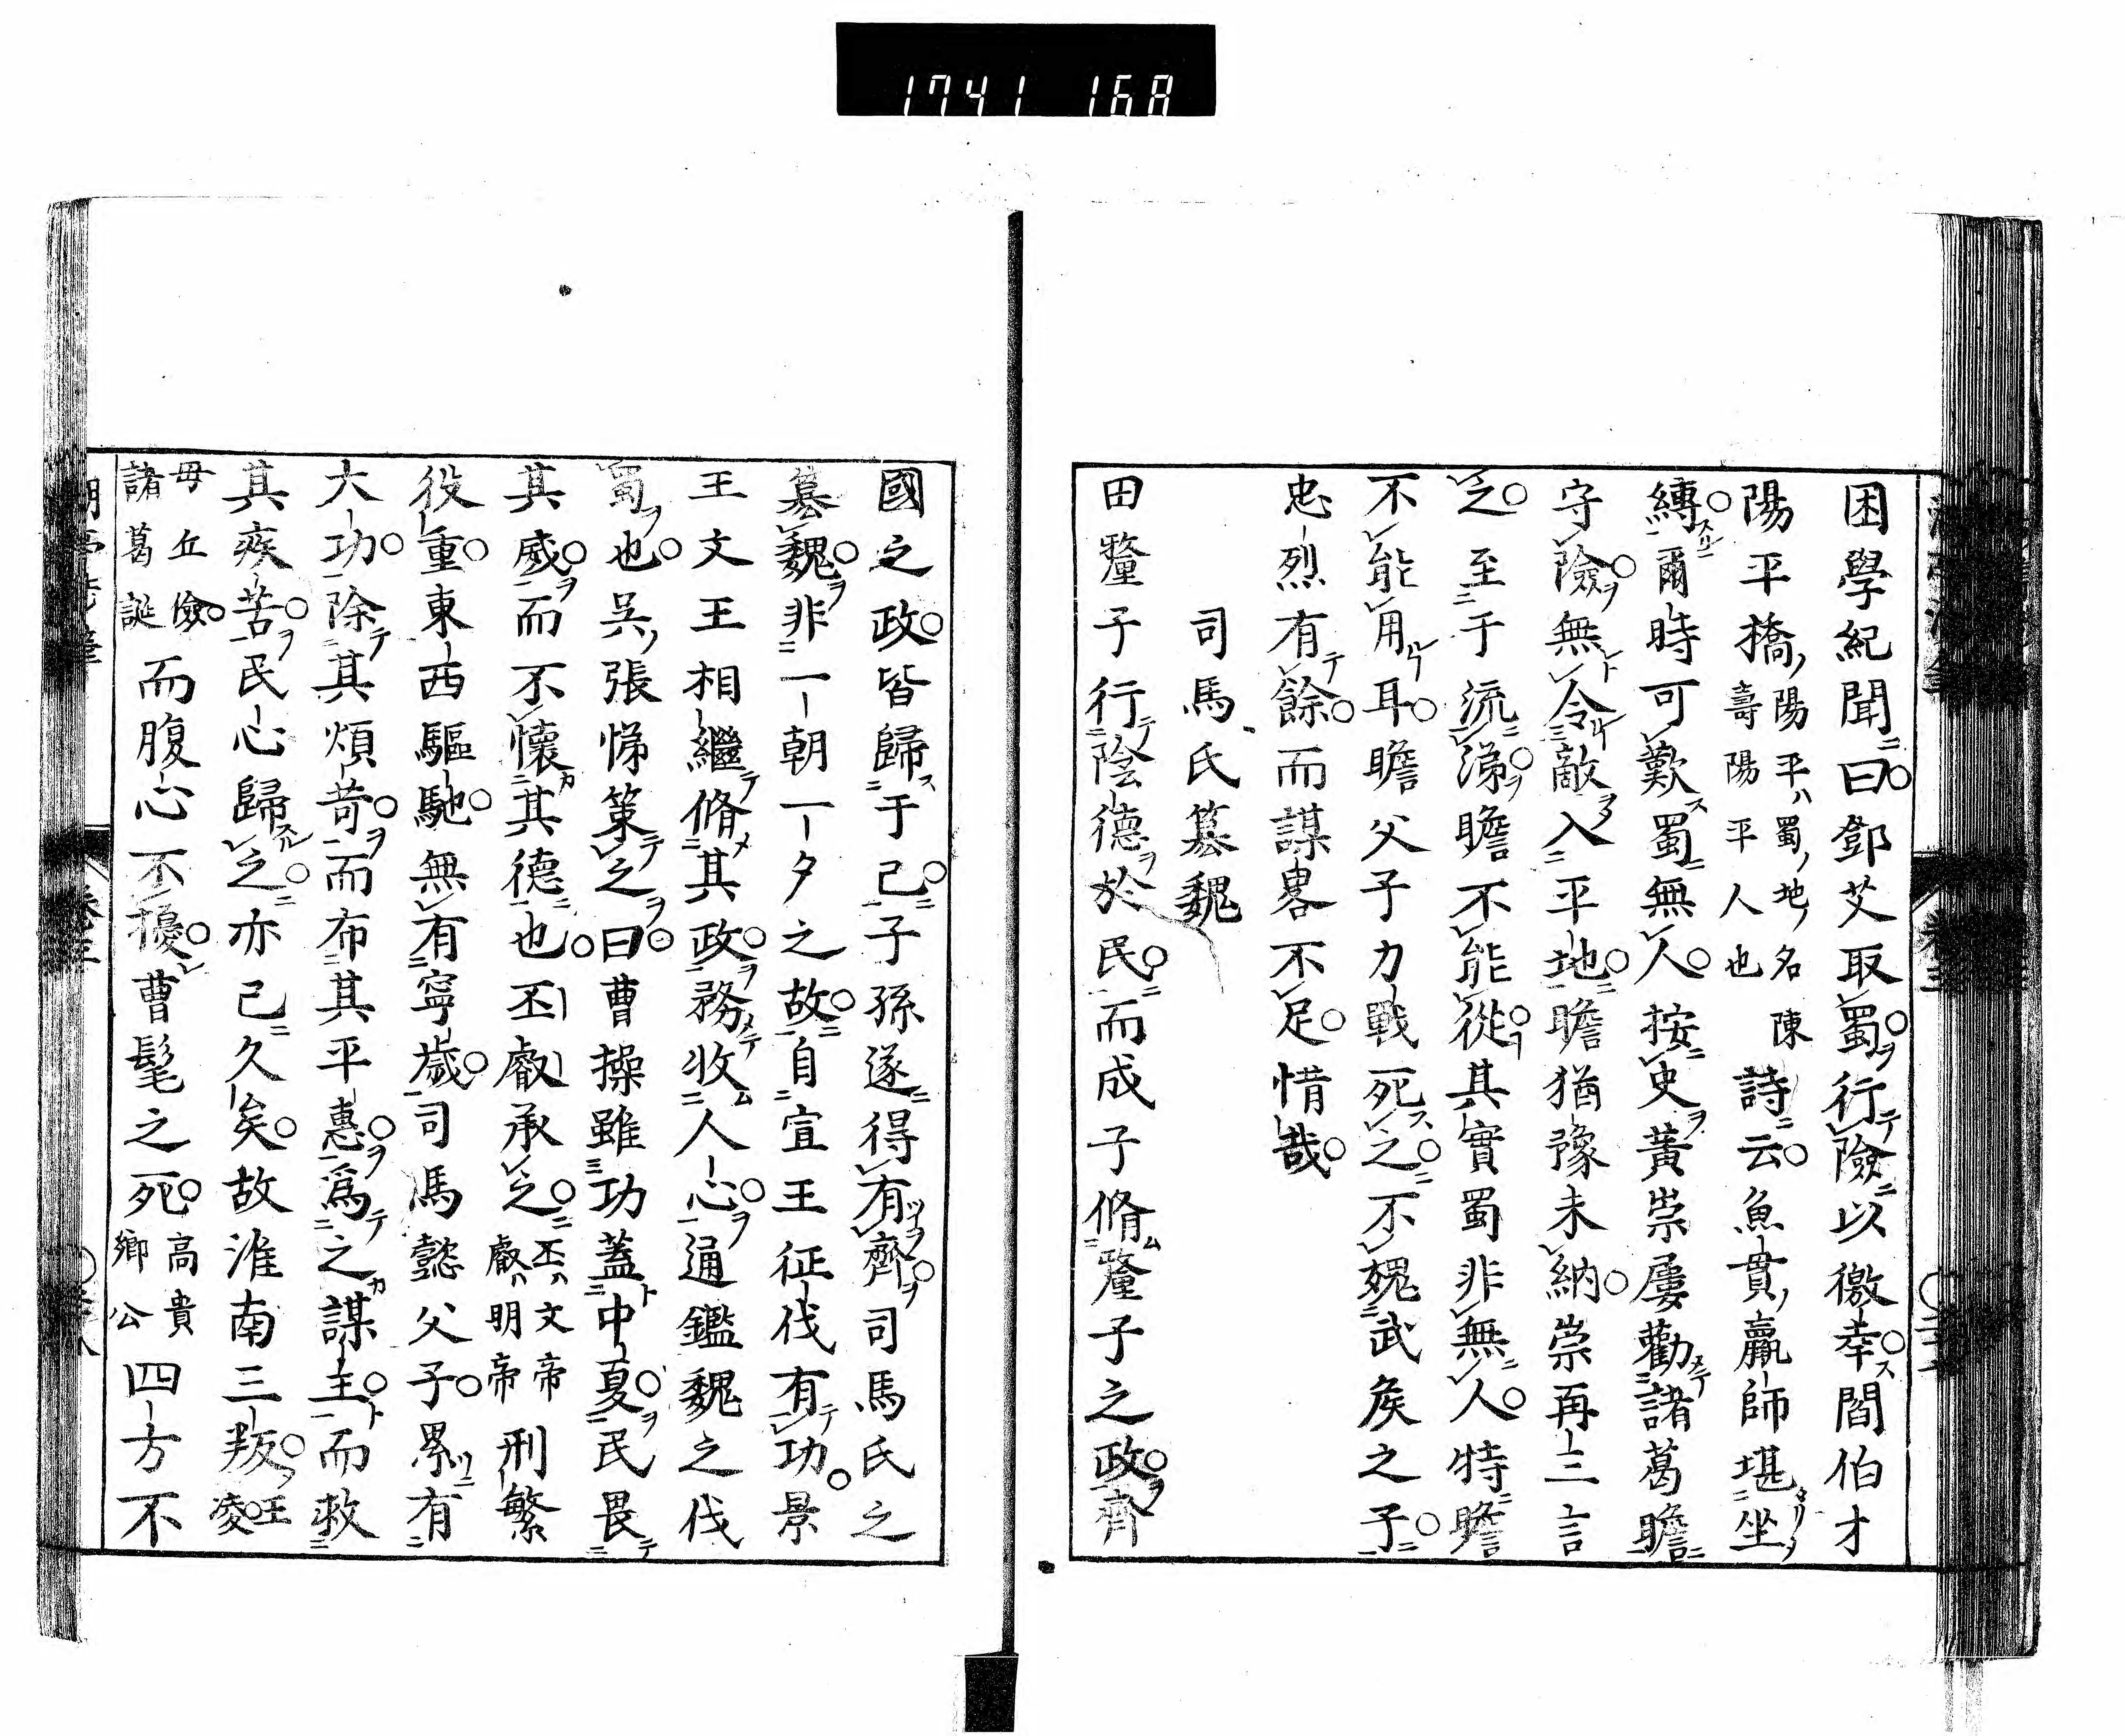 1741 168
困學紀聞曰鄧艾取蜀行險以徼幸閻伯才
陽平橋陽平ハ蜀ノ地ノ名陳壽陽平人也詩云魚貫羸師堪坐
縛爾時可歎蜀無人按史黃崇屢勸諸葛瞻
守險無令敵入平地瞻猶豫未納崇再三言
之至于流涕瞻不能從其實蜀非無人特瞻
不能用耳瞻父子力戰死之不媿武矦之子
忠烈有餘而謀畧不足惜哉
司馬氏簒魏
田釐子行陰德於民而成子脩釐子之政齊
國之政皆歸于己子孫遂得有齊司馬氏之
簒魏非一朝一夕之故自宣王征伐有功景
王文王相繼脩其政務收人心通鑑魏之伐
蜀也吳張悌策之曰曹操雖功蓋中夏民畏
其威而不懷其德也丕叡承之丕ハ文帝叡ハ明帝刑繁
役重東西驅馳無有寧歲司馬懿父子累有
大功除其煩苛而布其平惠爲之謀主而救
其疾苦民心歸之亦已久矣故淮南三叛王凌
毋丘儉諸葛誕而腹心不擾曹髦之死高貴鄉公四方不